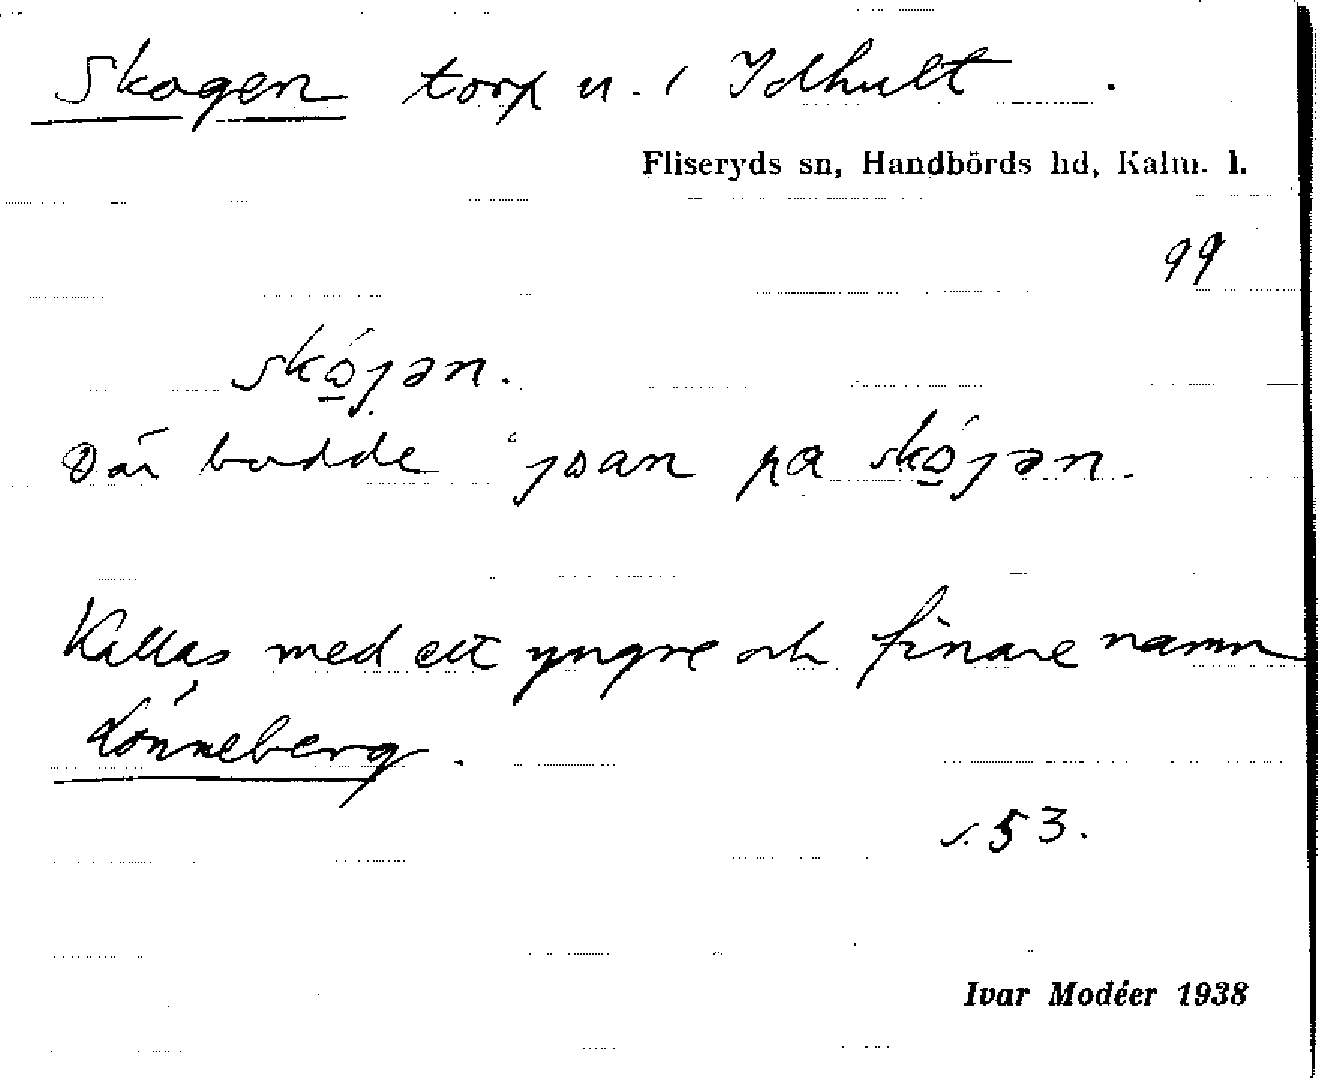 Skogen torp u. i Idhult .
Fliseryds sn, Handbörds hd, Kalm. l.
99
skǫ́jən.
Där bodde joan pa skǫ́jən.
Kallas med ett yngre och finare namn
Lönneberg.
s. 53.
Ivar Modéer 1938